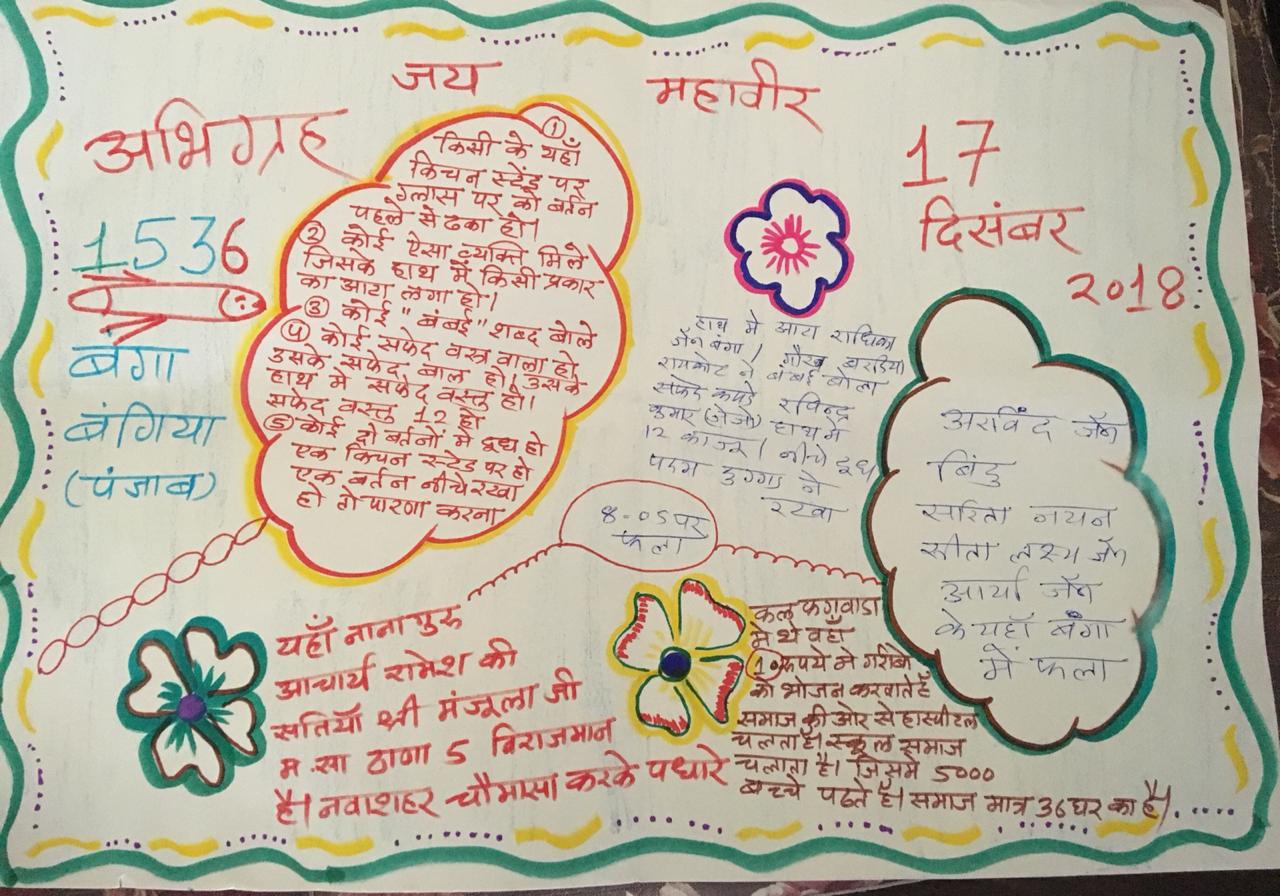 जय महावीर
अभिग्रह
1536
बंगा
बंगिया
(पंजाब)
①
किसी के यहाँ
किचन स्टेंड पर
ग्लास पर को बर्तन
पहले से ढका हो।
② कोई ऐसा व्यक्ति मिले
जिसके हाथ में किसी प्रकार
का आटा लगा हो।
③ कोई "बंबई" शब्द बोले
④ कोई सफेद वस्त्र वाला हो
उसके सफेद बाल हो। उसके
हाथ मे सफेद वस्तु हो।
सफेद वस्तु 12 हो
⑤ कोई दो बर्तनों में दूध हो
एक किचन स्टेंड पर हो
एक बर्तन नीचे रखा
हो तो पारणा करना
17
दिसंबर
2018
हाथ मे आटा राधिका
जैन बंगा। गौरव बरडिया
रायकोट ने बंबई बोला
सफेद कपडे रविन्द्र
कुमार (जेजो) हाथ में
12 काजू। नीचे दूध
पदम डुग्गा ने
रखा
8-05 पर
फला
अरविंद जैन
बिंदु
सरिता नयन
सीता लक्ष्य जैन
आर्या जैन
के यहाँ बंगा
में फला
यहाँ नाना गुरु
आचार्य रामेश की
सतियाँ श्री मंजूला जी
म.सा ठाणा 5 विराजमान
है। नवाशहर चौमासा करके पधारे
कल फगवाडा
मे थे वहाँ
10 रूपये मे गरीबो
को भोजन करवाते हैं
समाज की ओर से हास्पीटल
चलता है। स्कूल समाज
चलाता है। जिसमे 5000
बच्चे पढते हैं। समाज मात्र 36 घर का है।